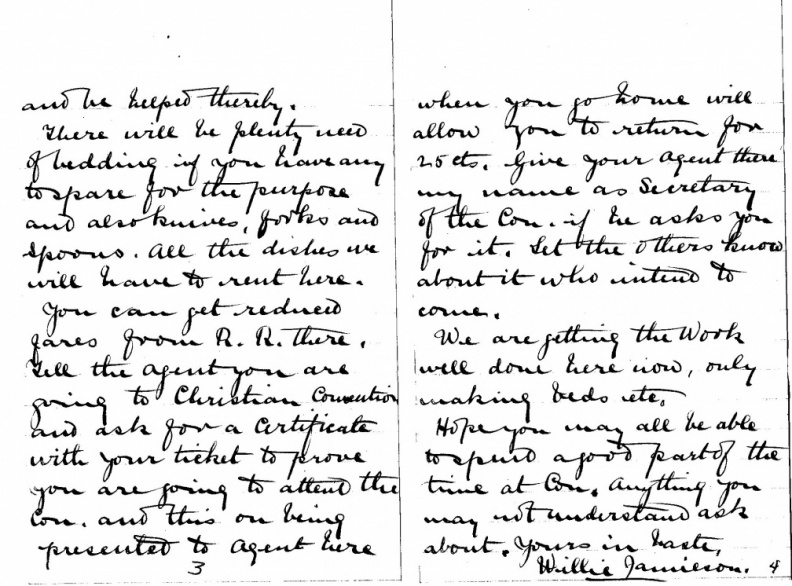 and be helped thereby.
There will be plenty need
of bedding if you have any
to spare for the purpose
and also knives, forks and
spoons. All the dishes we
will have to rent here.
You can get reduced
fares from R. R. there.
Tell the agent you are
going to Christian Convention
and ask for a Certificate
with your ticket to prove
you are going to attend the
Con. and this on being
presented to Agent here
3
when you go home will
allow you to return for
25 cts. Give your agent there
my name as Secretary
of the Con. if he asks you
for it. Let the others know
about it who intend to
come.
We are getting the Work
well done here now, only
making beds etc.
Hope you may all be able
to spend a good part of the
time at Con. Anything you
may not understand ask
about. Yours in haste,
Willie Jamieson.
4